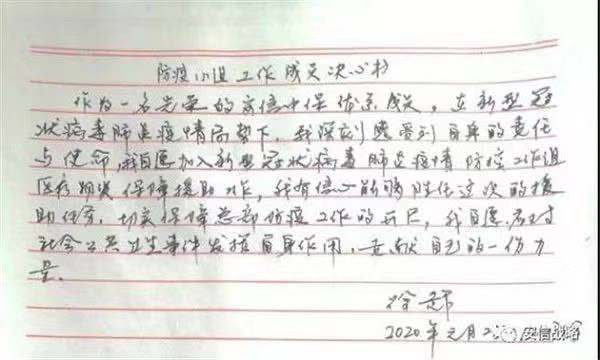 防疫小组工作成员决心书
作为一名光荣的安信中保优京成员，在新型冠
状病毒肺炎疫情局势下，我深刻感受到自身的责任
与使命，我自愿加入新型冠状病毒肺炎疫情防控工作组
医疗物资保障援助工作，我有信心能够胜任这次的援
助任务，切实保障总部防疫工作的开展，我自愿应对
社会公共卫生事件发挥自身作用，贡献自己的一份力
量。
徐
2020年元月2
安信战略